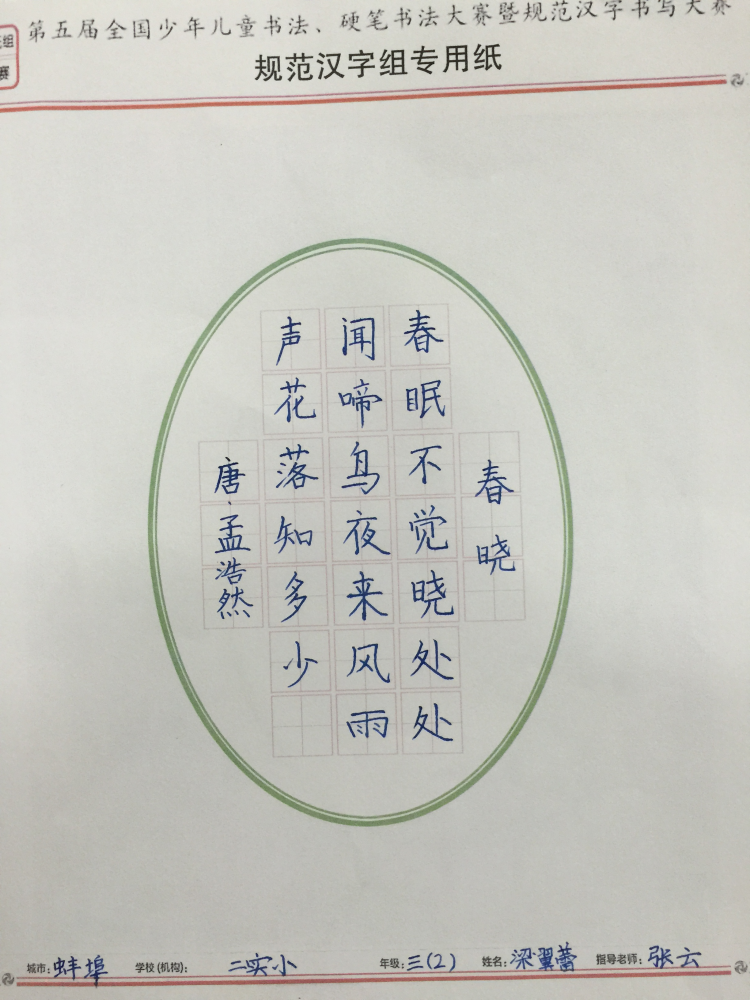 第五届全国少年儿童书法、硬笔书法大赛暨规范汉字书写大赛
组
赛
规范汉字组专用纸
春晓
春眠不觉晓处处
闻啼鸟夜来风雨
声花落知多少
唐·孟浩然
城市：蚌埠 学校(机构)：二实小 年级：三(2) 姓名：梁翼蕾 指导老师：张云